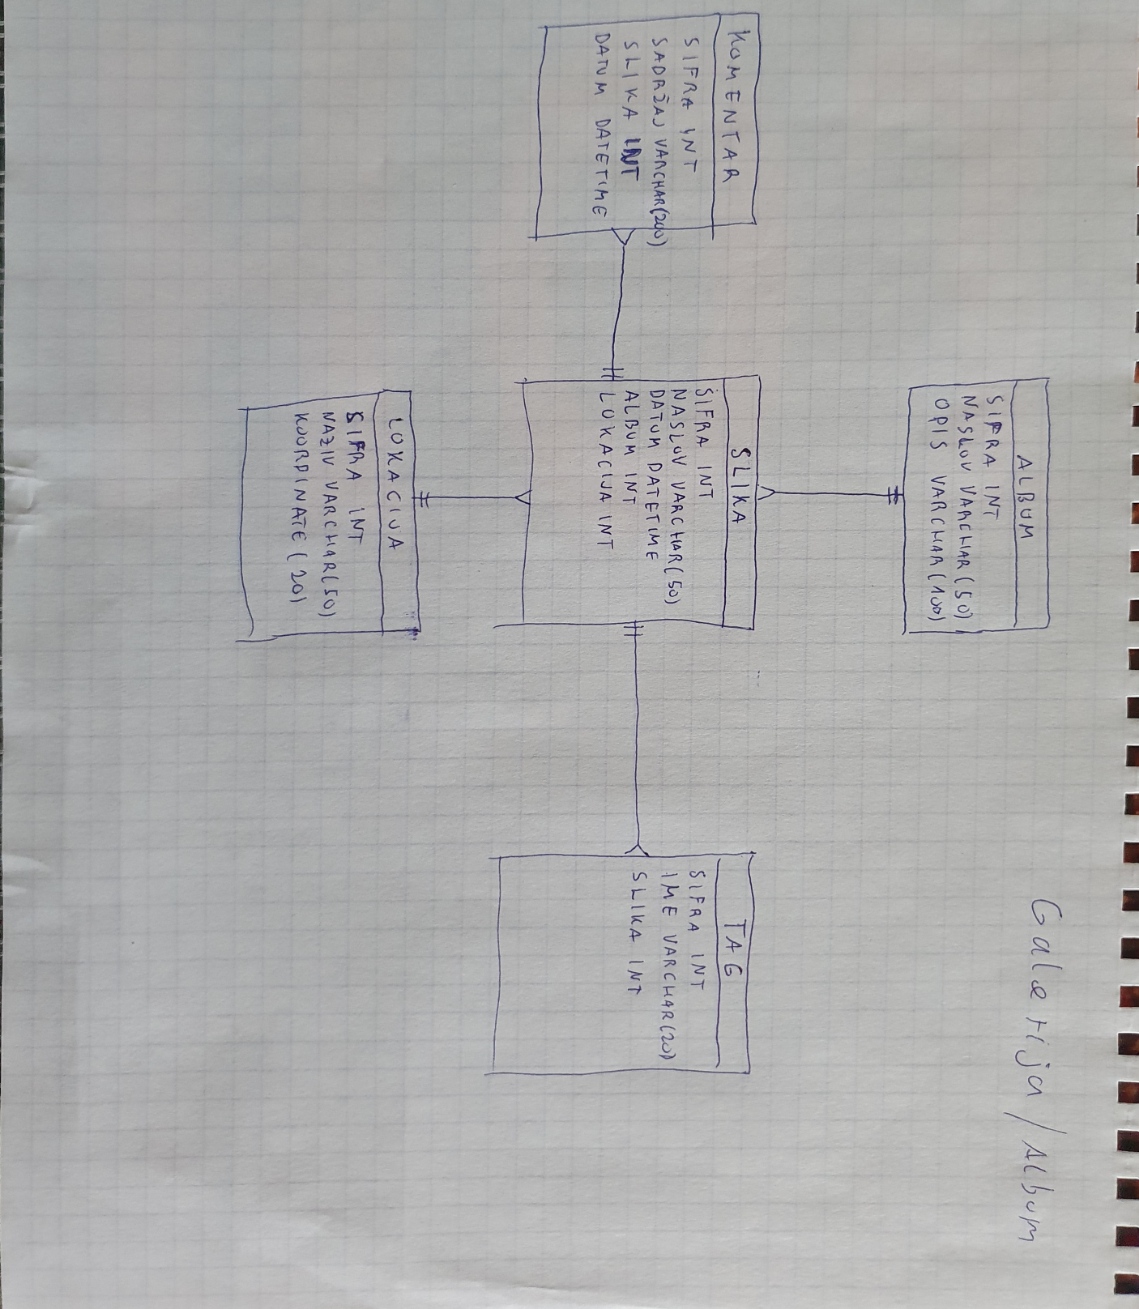 Galerija/Album
ALBUM
SIFRA INT
NASLOV VARCHAR(50)
OPIS VARCHAR(100)
KOMENTAR
SIFRA INT
SADRŽAJ VARCHAR(200)
SLIKA INT
DATUM DATETIME
SLIKA
SIFRA INT
NASLOV VARCHAR(50)
DATUM DATETIME
ALBUM INT
LOKACIJA INT
TAG
SIFRA INT
IME VARCHAR(20)
SLIKA INT
LOKACIJA
SIFRA INT
NAZIV VARCHAR(50)
KOORDINATE (20)